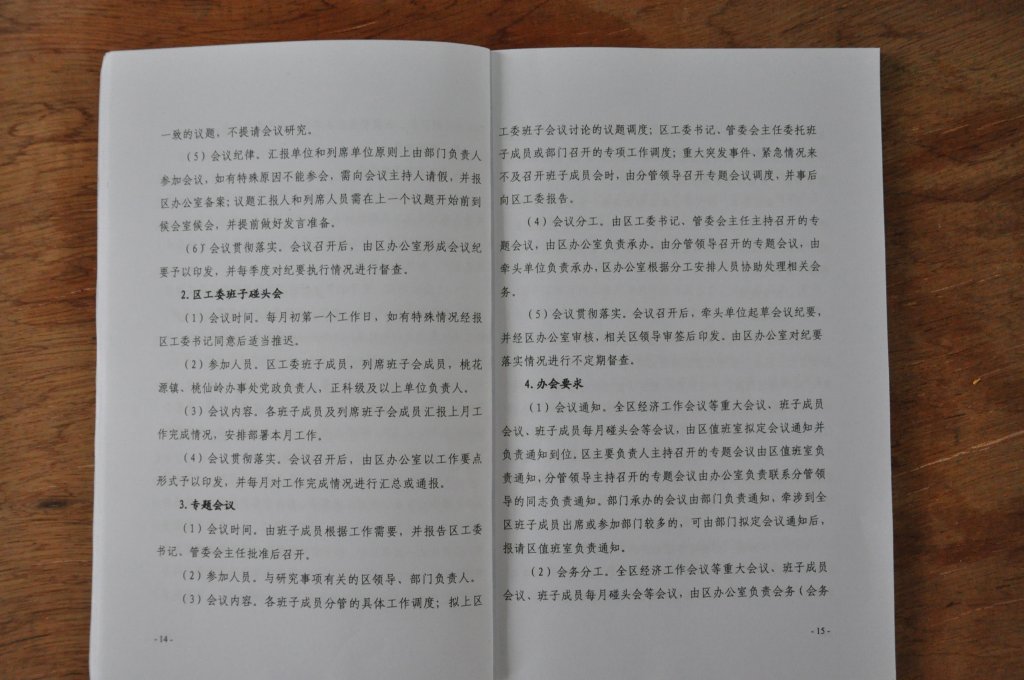 一致的议题，不提请会议研究。
（5）会议纪律。汇报单位和列席单位原则上由部门负责人
参加会议，如有特殊原因不能参会，需向会议主持人请假，并报
区办公室备案；议题汇报人和列席人员需在上一个议题开始前到
候会室候会，并提前做好发言准备。
（6）会议贯彻落实。会议召开后，由区办公室形成会议纪
要予以印发，并每季度对纪要执行情况进行督查。
2.区工委班子碰头会
（1）会议时间。每月初第一个工作日，如有特殊情况经报
区工委书记同意后适当推迟。
（2）参加人员。区工委班子成员，列席班子会成员，桃花
源镇、桃仙岭办事处党政负责人，正科级及以上单位负责人。
（3）会议内容。各班子成员及列席班子会成员汇报上月工
作完成情况，安排部署本月工作。
（4）会议贯彻落实。会议召开后，由区办公室以工作要点
形式予以印发，并每月对工作完成情况进行汇总或通报。
3.专题会议
（1）会议时间。由班子成员根据工作需要，并报告区工委
书记、管委会主任批准后召开。
（2）参加人员。与研究事项有关的区领导、部门负责人。
（3）会议内容。各班子成员分管的具体工作调度；拟上区
- 14 -
工委班子会议讨论的议题调度；区工委书记、管委会主任委托班
子成员或部门召开的专项工作调度；重大突发事件、紧急情况来
不及召开班子成员会时，由分管领导召开专题会议调度，并事后
向区工委报告。
（4）会议分工。由区工委书记、管委会主任主持召开的专
题会议，由区办公室负责承办。由分管领导召开的专题会议，由
牵头单位负责承办，区办公室根据分工安排人员协助处理相关会
务。
（5）会议贯彻落实。会议召开后，牵头单位起草会议纪要，
并经区办公室审核，相关区领导审签后印发。由区办公室对纪要
落实情况进行不定期督查。
4.办会要求
（1）会议通知。全区经济工作会议等重大会议、班子成员
会议、班子成员每月碰头会等会议，由区值班室拟定会议通知并
负责通知到位。区主要负责人主持召开的专题会议由区值班室负
责通知，分管领导主持召开的专题会议由办公室负责联系分管领
导的同志负责通知。部门承办的会议由部门负责通知，牵涉到全
区班子成员出席或参加部门较多的，可由部门拟定会议通知后，
报请区值班室负责通知。
（2）会务分工。全区经济工作会议等重大会议、班子成员
会议、班子成员每月碰头会等会议，由区办公室负责会务（会务
- 15 -